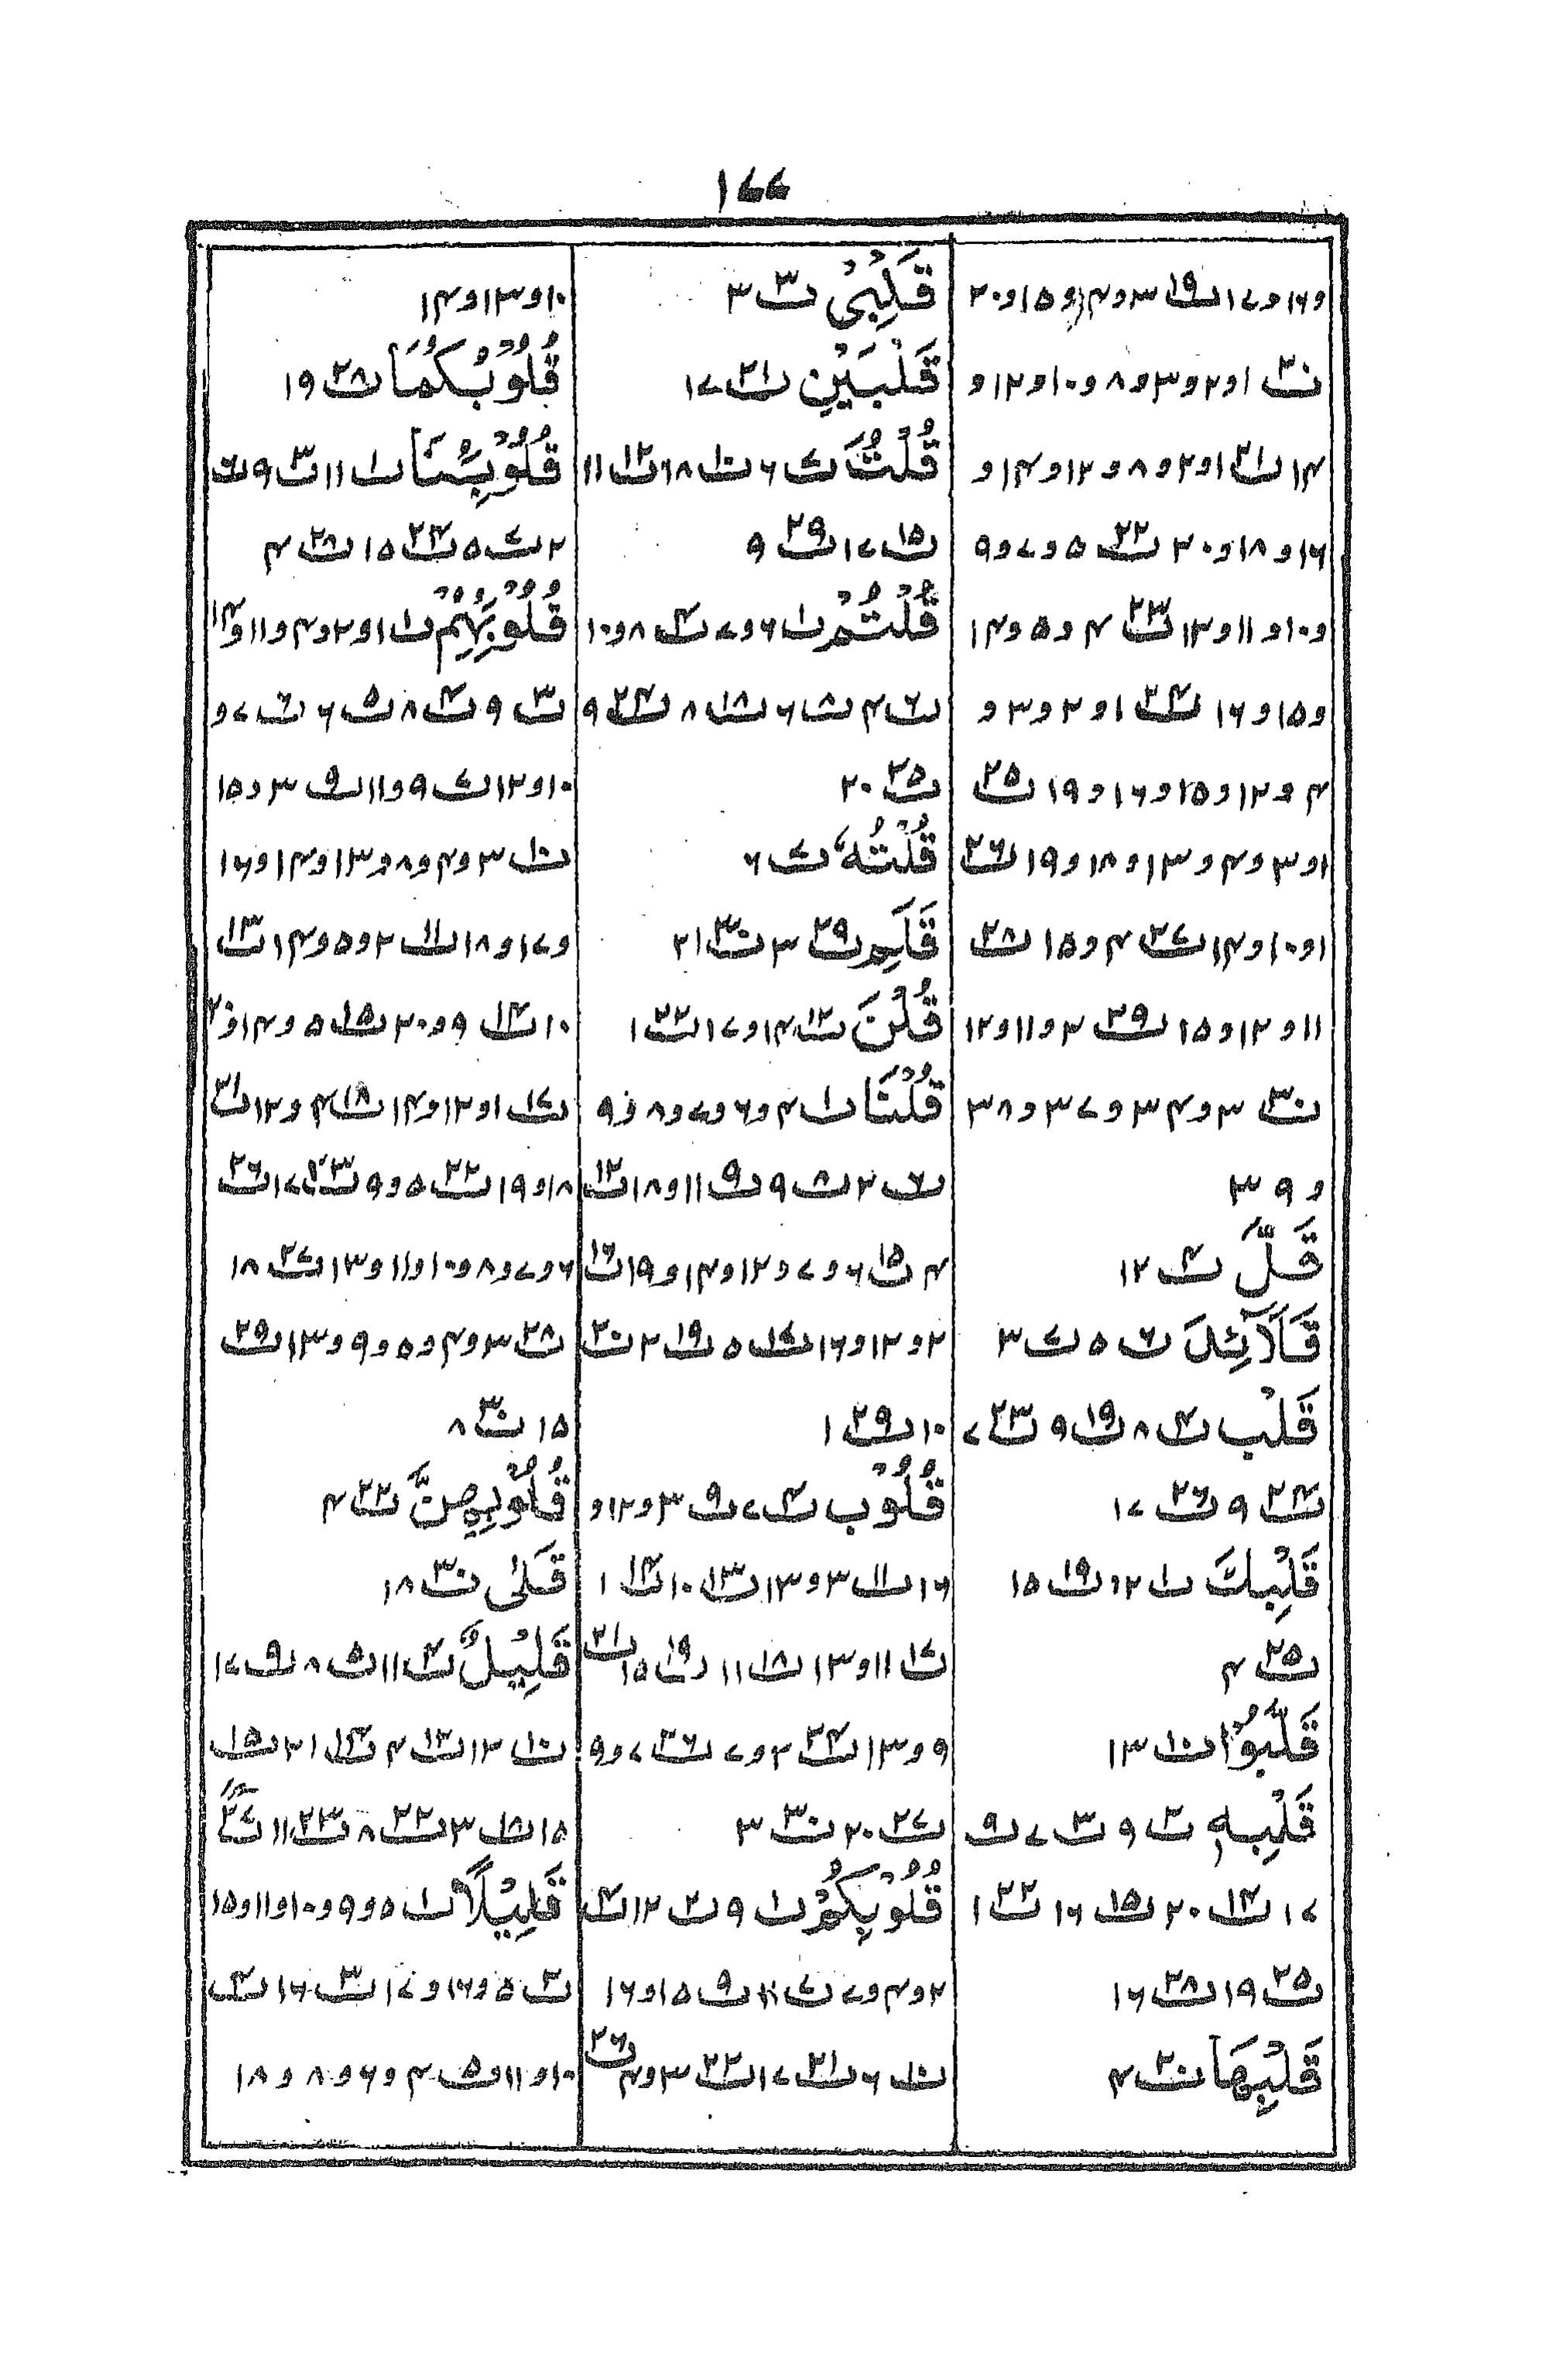 ۱۷۷
و۱۶و۱۷ ت۱۹ ۳و۴و۱۵و۲۰
ت۲۰ ۱و۲و۳و۸و۱۰و۱۲و
۱۴ ت۲۱ ۱و۲و۸و۱۲و۱۴و
۱۶و۱۸و۲۰ ت۲۲ ۵و۷و۹
و۱۰و۱۱و۱۳ ت۲۳ ۴و۵و۱۴
و۱۵و۱۶ ت۲۴ ۱و۲و۳و
۴و۱۲و۲۵و۱۶و۱۹ ت۲۵
۱و۳و۴و۱۳و۱۸و۱۹ ت۲۶
۱و۱۰و۱۴ ت۲۷ ۴و۱۵ ت۲۸
۱۱و۱۲و۱۵ ت۲۹ ۲و۱۱و۱۲
ت۳۰ ۳و۳۴و۳۷و۳۸
و۳۹
قَلَّ ت۴ ۱۲
قَلَآئِلَ ت۶ ۵ ت۷ ۳
قَلْب ت۴ ۸ ت۱۹ ۹ ت۲۳ ۷
ت۲۴ ۹ ت۲۶ ۱۷
قَلْبِكَ ت۱ ۱۲ ت۱۹ ۱۵
ت۲۵ ۴
قَلَّبُوْا ت۱۰ ۱۳
قَلْبِهٖ ت۲ ۹ ت۳ ۷ ت۹
۱۷ ت۱۴ ۲۰ ت۱۵ ۱۶ ت۲۲ ۱
ت۲۵ ۱۹ ت۲۸ ۱۶
قَلْبِهَا ت۲۰ ۴
قَلْبِیْ ت۳ ۳
قَلْبَیْنِ ت۲۱ ۱۷
قُلْتُ ت۷ ۶ ت۱۰ ۱۸ ت۱۲ ۱۱
ت۱۵ ۱۷ ت۲۹ ۹
قُلْتُمْ ت۱ ۶و۷ ت۴ ۸و۱۰
ت۶ ۴ ت۸ ۶ ت۱۸ ۸ ت۲۴ ۹
ت۲۵ ۲۰
قُلْتُهٗ ت۷ ۶
قَلَمِ ت۲۹ ۳ ت۳۰ ۲۱
قُلْنَ ت۱۲ ۱۴و۱۷ ت۲۲ ۱
قُلْنَا ت۱ ۴و۶و۷و۸و۹
ت۶ ۲ ت۸ ۹ ت۹ ۱۱و۱۸ ت۱۲
۴ ت۱۵ ۶و۷و۱۲و۱۴و۱۹ ت۱۶
۲و۱۲و۱۶ ت۱۷ ۵ ت۱۹ ۲ ت۲۰
۱۰ ت۲۹ ۱
قُلُوْب ت۴ ۷ ت۹ ۳و۱۲و
۱۶ ت۱۱ ۳و۱۳ ت۱۳ ۱۰ ت۱۴ ۱
ت۱۷ ۱۱و۱۳ ت۱۸ ۱۱ ت۱۹ ۱۵ ت۲۱
۹و۱۳ ت۲۴ ۲و۷ ت۲۶ ۷و۹
ت۲۷ ۲۰ ت۳۰ ۳
قُلُوْبِكُمْ ت۱ ۹ ت۲ ۱۲ ت۴
۲و۴و۷ ت۷ ۱۱ ت۹ ۱۵و۱۶
ت۱۰ ۶ ت۲۱ ۱۷ ت۲۲ ۳و۴ ت۲۶
۱۰و۱۳و۱۴
قُلُوْبُكُمَا ت۲۸ ۱۹
قُلُوْبُنَا ت۱ ۱۱ ت۳ ۹ ت۶
۲ ت۷ ۵ ت۲۴ ۱۵ ت۲۸ ۴
قُلُوْبِهِمْ ت۱ ۱و۲و۴و۱۱و۱۴
ت۳ ۹ ت۴ ۸ ت۵ ۶ ت۶ ۷و
۱۰و۱۲ ت۷ ۹و۱۱ ت۹ ۳و۱۵
ت۱۰ ۳و۴و۸و۱۳و۱۴و۱۶
و۱۷و۱۸ ت۱۱ ۲و۵و۱۴ ت۱۳
۱۰ ت۱۴ ۹و۲۰ ت۱۵ ۵و۱۴و۲۰
ت۱۷ ۱و۱۲و۱۴ ت۱۸ ۴و۱۲ ت۲۱
۱۸و۱۹ ت۲۲ ۵و۹ ت۲۳ ۱۷ ت۲۶
۶و۷و۸و۱۰و۱۱و۱۳ ت۲۷ ۱۸
ت۲۸ ۳و۴و۵و۹و۱۳ ت۲۹
۱۵ ت۳۰ ۸
قُلُوْبِهِنَّ ت۲۲ ۴
قَلٰى ت۳۰ ۱۸
قَلِیْلٌ ت۲ ۱۱ ت۵ ۸ ت۹ ۱۷
ت۱۰ ۱۲ ت۱۲ ۴ ت۱۴ ۲۱ ت۱۵
۱۵ ت۱۸ ۳ ت۲۲ ۸ ت۲۳ ۱۱ ت۲۷
قَلِیْلًا ت۱ ۵و۹و۱۰و۱۱و۱۵
ت۲ ۵و۱۶و۱۷ ت۳ ۱۶ ت۴
۱۰و۱۱ ت۵ ۴و۶و۸و۱۸